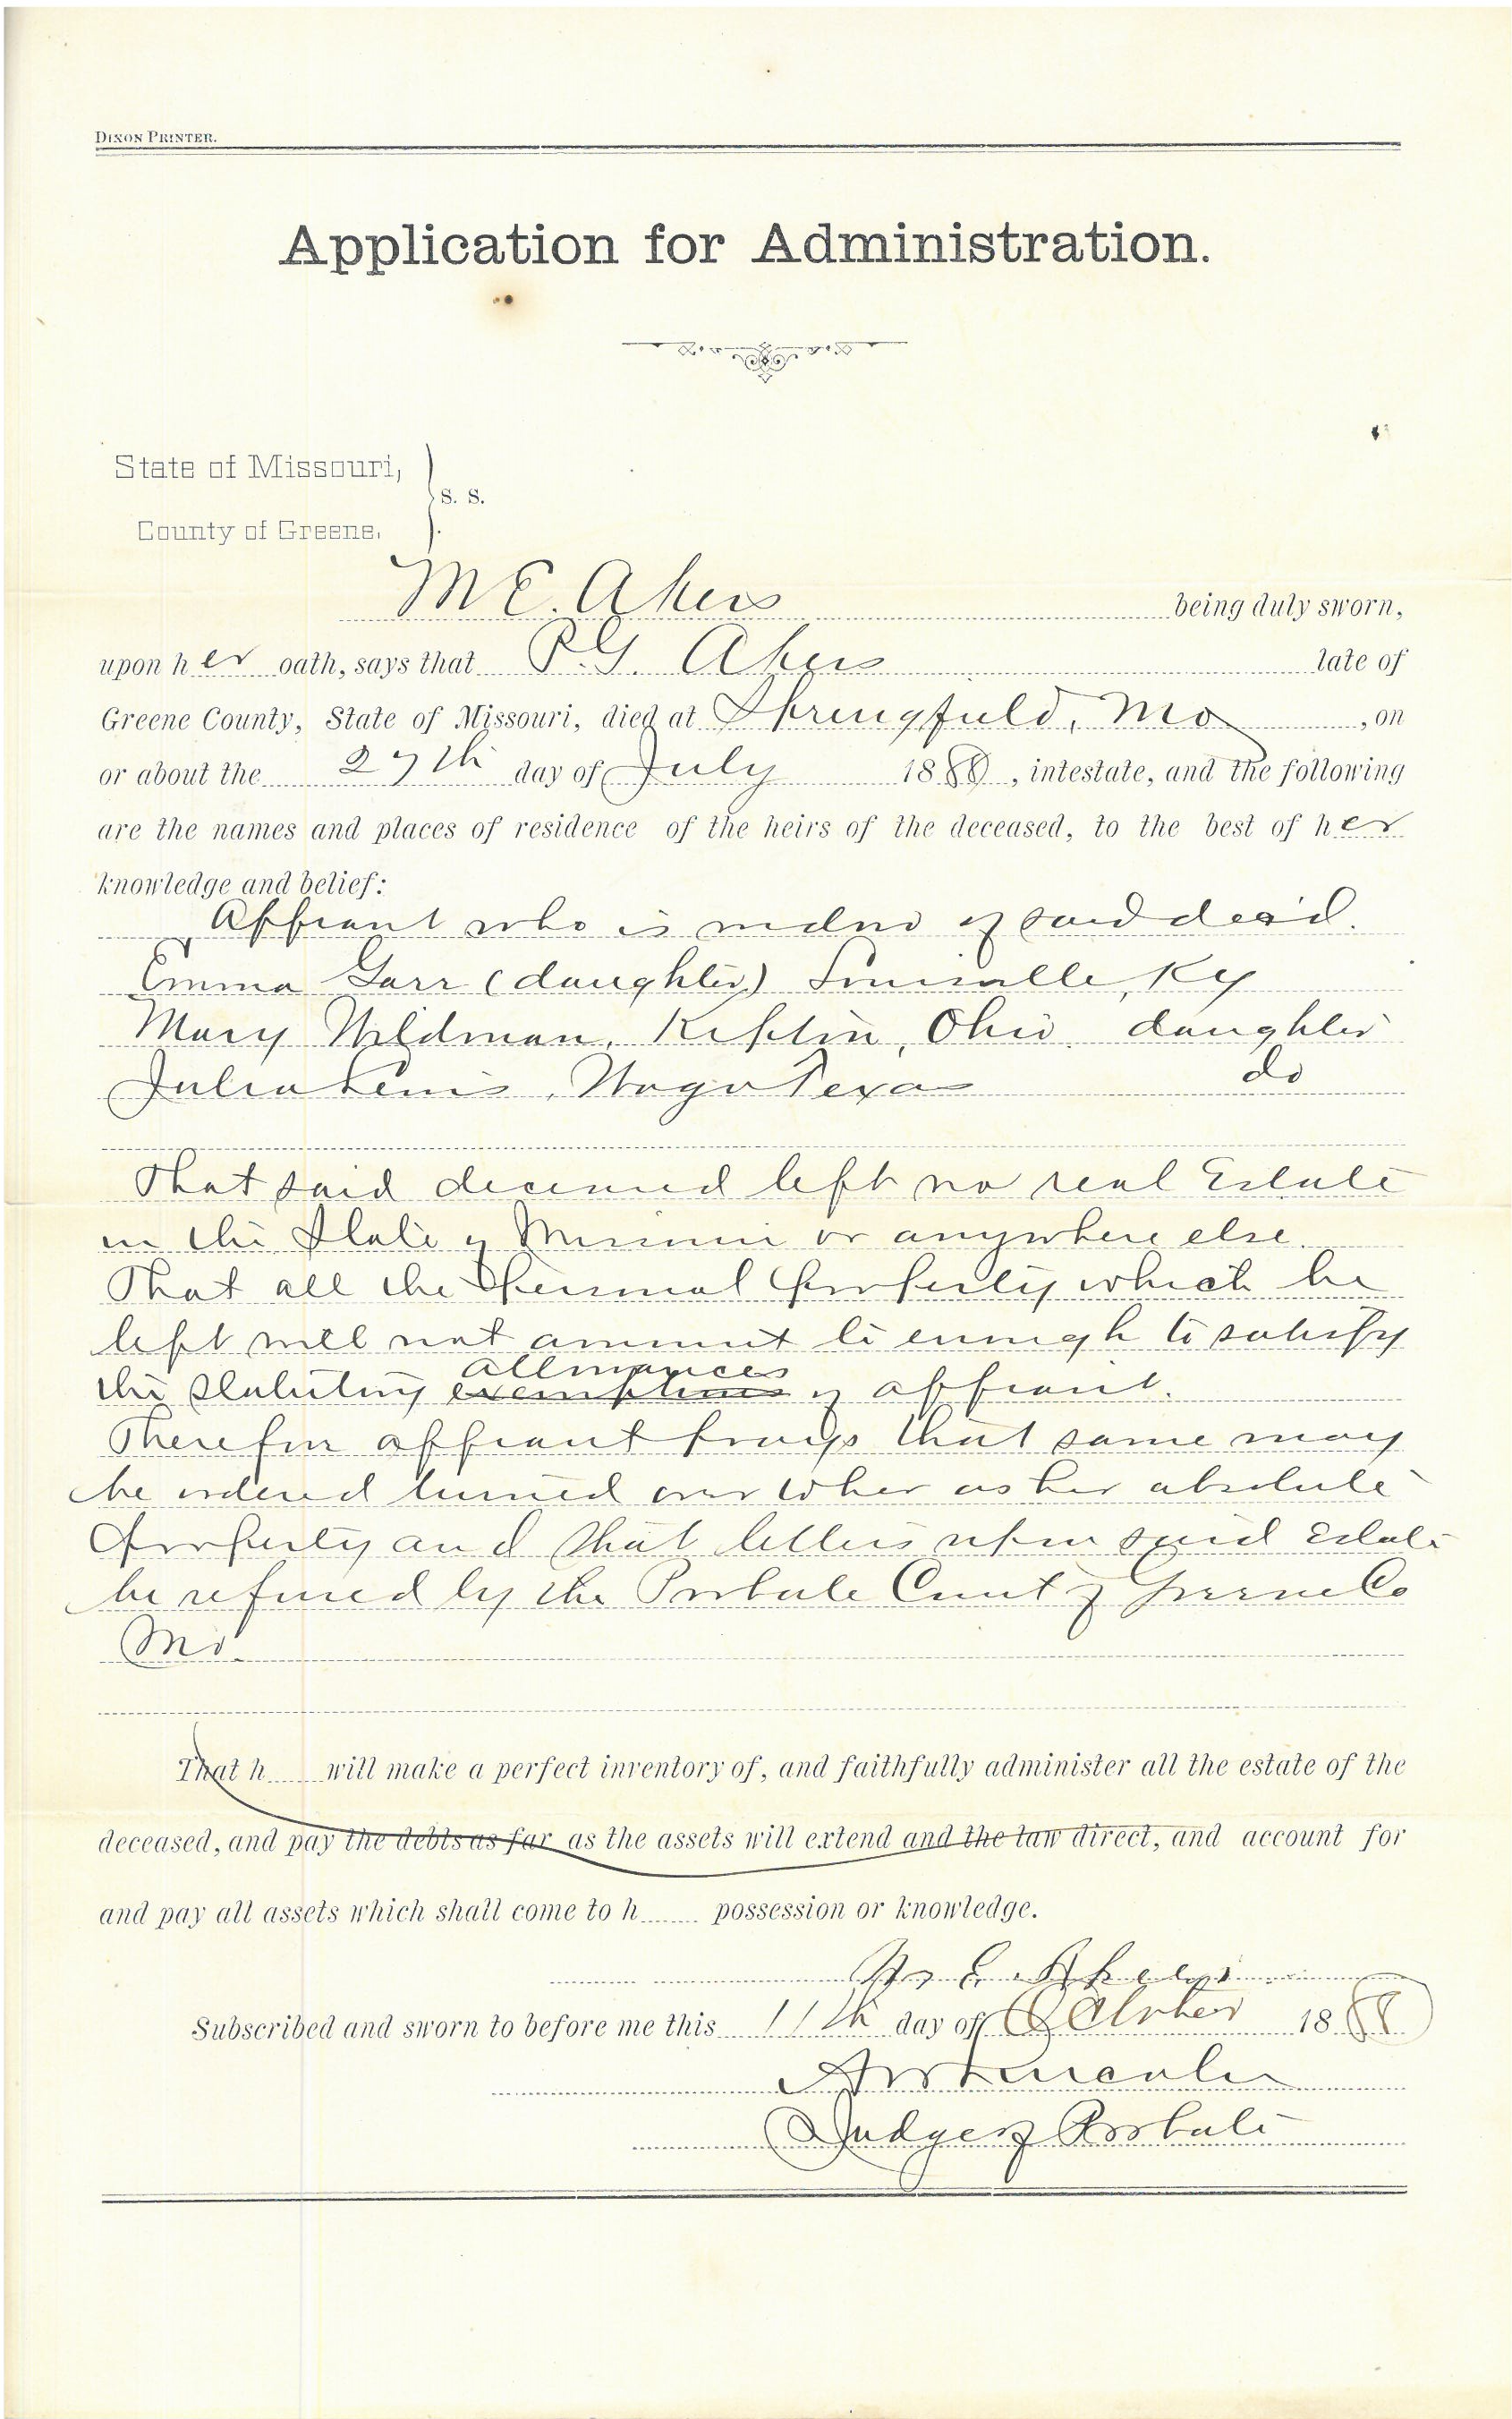 DIXON PRINTER.
Application for Administration.
State of Missouri,
S. S.
County of Greene.
M E. Akers being duly sworn,
upon her oath, says that P. G. Akers late of
Greene County, State of Missouri, died at Springfield, Mo, on
or about the 27th day of July 1888, intestate, and the following
are the names and places of residence of the heirs of the deceased, to the best of her
knowledge and belief:
Affiant who is widow of said dec'd.
Emma Garr (daughter) Louisville, Ky
Mary Wildman, Ohio, daughter
Julia Lewis, Texas do
That said deceased left no real Estate
in the State of Missouri or anywhere else.
That all the personal property which he
left will not amount to enough to satisfy
allowances
the statutory exemptions of affiant.
Therefor affiant prays that same may
be ordered turned over to her as her absolute
property and that letters upon said Estate
be refused by the Probate Court of Greene Co
Mo.
That h will make a perfect inventory of, and faithfully administer all the estate of the
deceased, and pay the debts as far as the assets will extend and the law direct, and account for
and pay all assets which shall come to h possession or knowledge.
M. E. Akers
Subscribed and sworn to before me this 11th day of October 1888
Judge of Probate